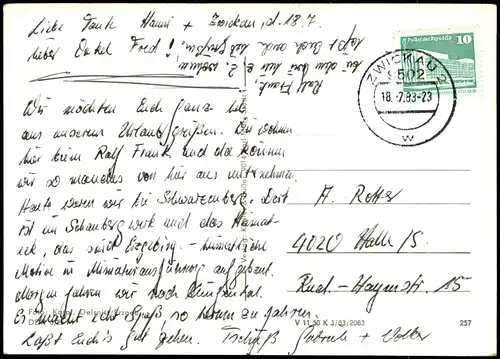 Liebe Tante Hanni + Zwickau, d. 18.7.
lieber Onkel Fred!
Wir möchten Euch ganz lieb
aus unserem Urlaub grüßen. Wir wohnen
hier beim Ralf Frank und da können
wir so manches von hier aus unternehmen.
Heute waren wir bei Schwarzenberg. Dort
ist ein Schaubergwerk und das Heimat-
eck, das sind Erzgebirg.
Motive in Miniaturausführung aufgebaut.
Morgen fahren wir nach Klingenthal.
Es macht echt Spaß so herum zu fahren.
Laßt Euch's gut gehen. Tschüß Gabriele + Volker
Ralf Frank
10
ZWICKAU 2
9502
18.-7.83-23
w
A. Retter
4020 Halle/S.
Rud.-Haym-Str. 15
V 11 50 K 3/83/2063
257